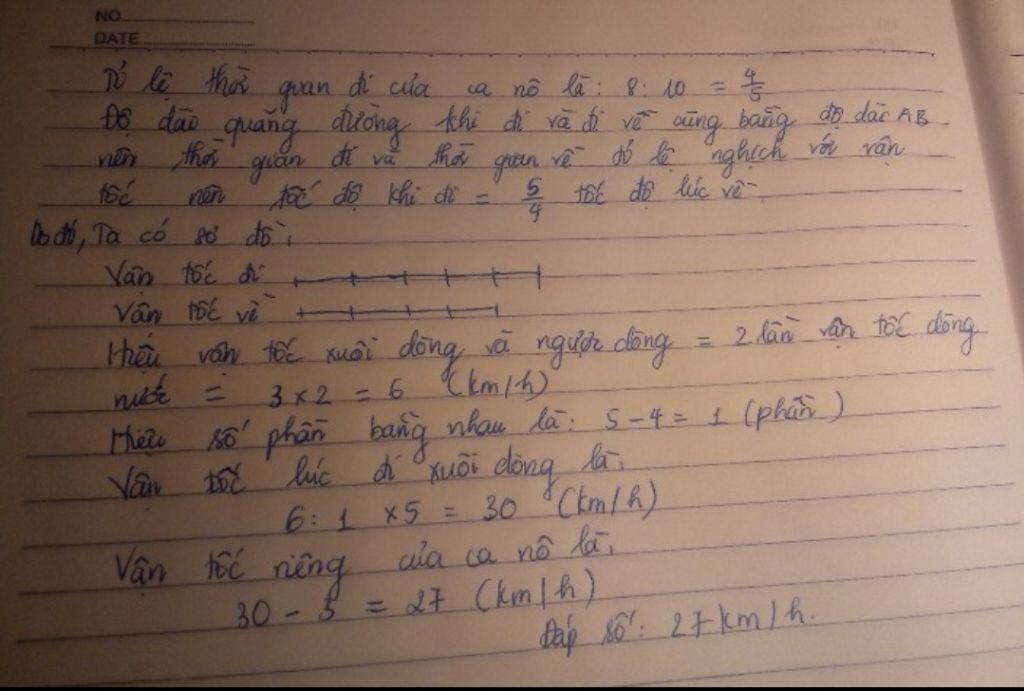 NO
DATE
Tỉ lệ thời quan đi của ca nô là: 8 : 10 = 4/5
Độ dài quãng đường khi đi và đi về cũng bằng độ dài AB
nên thời gian đi và thời gian về tỉ lệ nghịch với vận
tốc nên tốc độ khi đi = 5/4 tốc độ lúc về.
Do đó, Ta có sơ đồ:
Vận tốc đi
Vận tốc về
Hiệu vận tốc xuôi dòng và ngược dòng = 2 lần vận tốc dòng
nước = 3 x 2 = 6 (km/h)
Hiệu số phần bằng nhau là: 5 - 4 = 1 (phần)
Vận tốc lúc đi xuôi dòng là:
6 : 1 x 5 = 30 (km/h)
Vận tốc riêng của ca nô là:
30 - 3 = 27 (km/h)
Đáp số: 27 km/h.